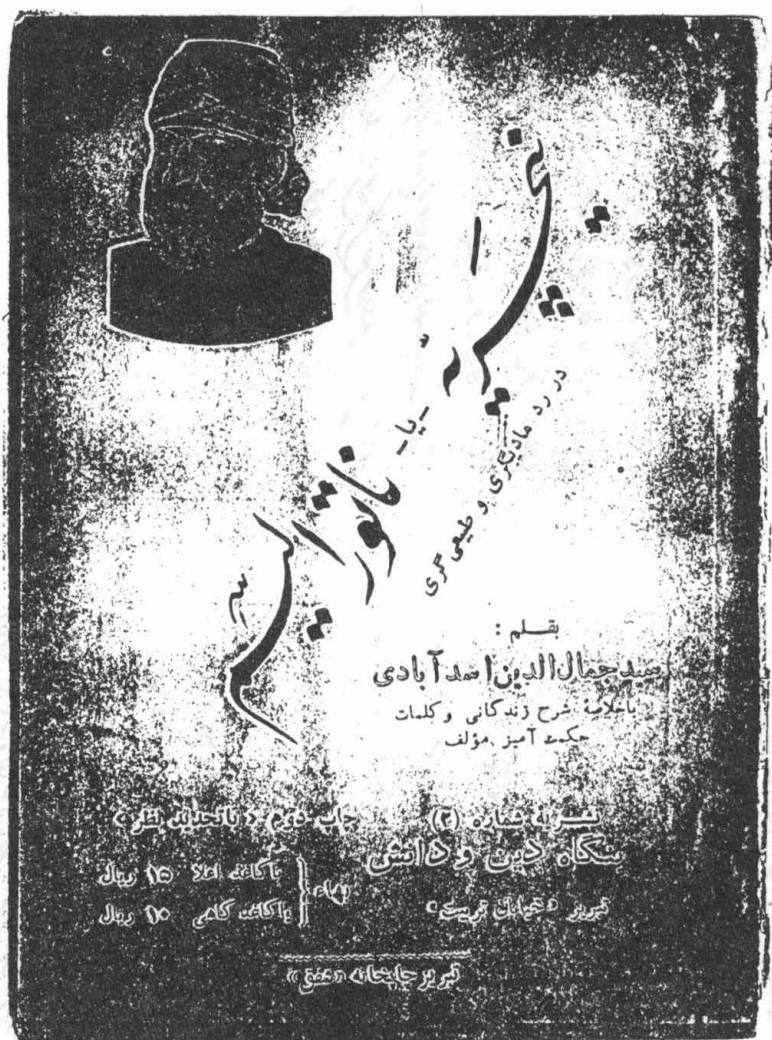 نیچریه
-یا-
ناتورالیسم
در رد مادیگری و طبیعی گری
بقلم :
سید جمال الدین اسد آبادی
باخلاصهٔ شرح زندگانی و کلمات
حکمت آمیز مؤلف
نشریهٔ شماره (۳) چاپ دوم «باتجدید نظر»
بنگاه دین و دانش
تبریز «خیابان تربیت»
بهاء { باکاغذ اعلا ۱۵ ریال
باکاغذ کاهی ۱۰ ریال
تبریز چاپخانه «شفق»